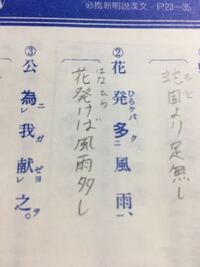 必携新明説漢文/P.23〜35
もと
蛇固より足無し
ひらケバ ク
② 花発多二風雨、
はな ひら
花発けば風雨多し
ニ ガ ゼヨ ヲ
③ 公為レ我献レ之。